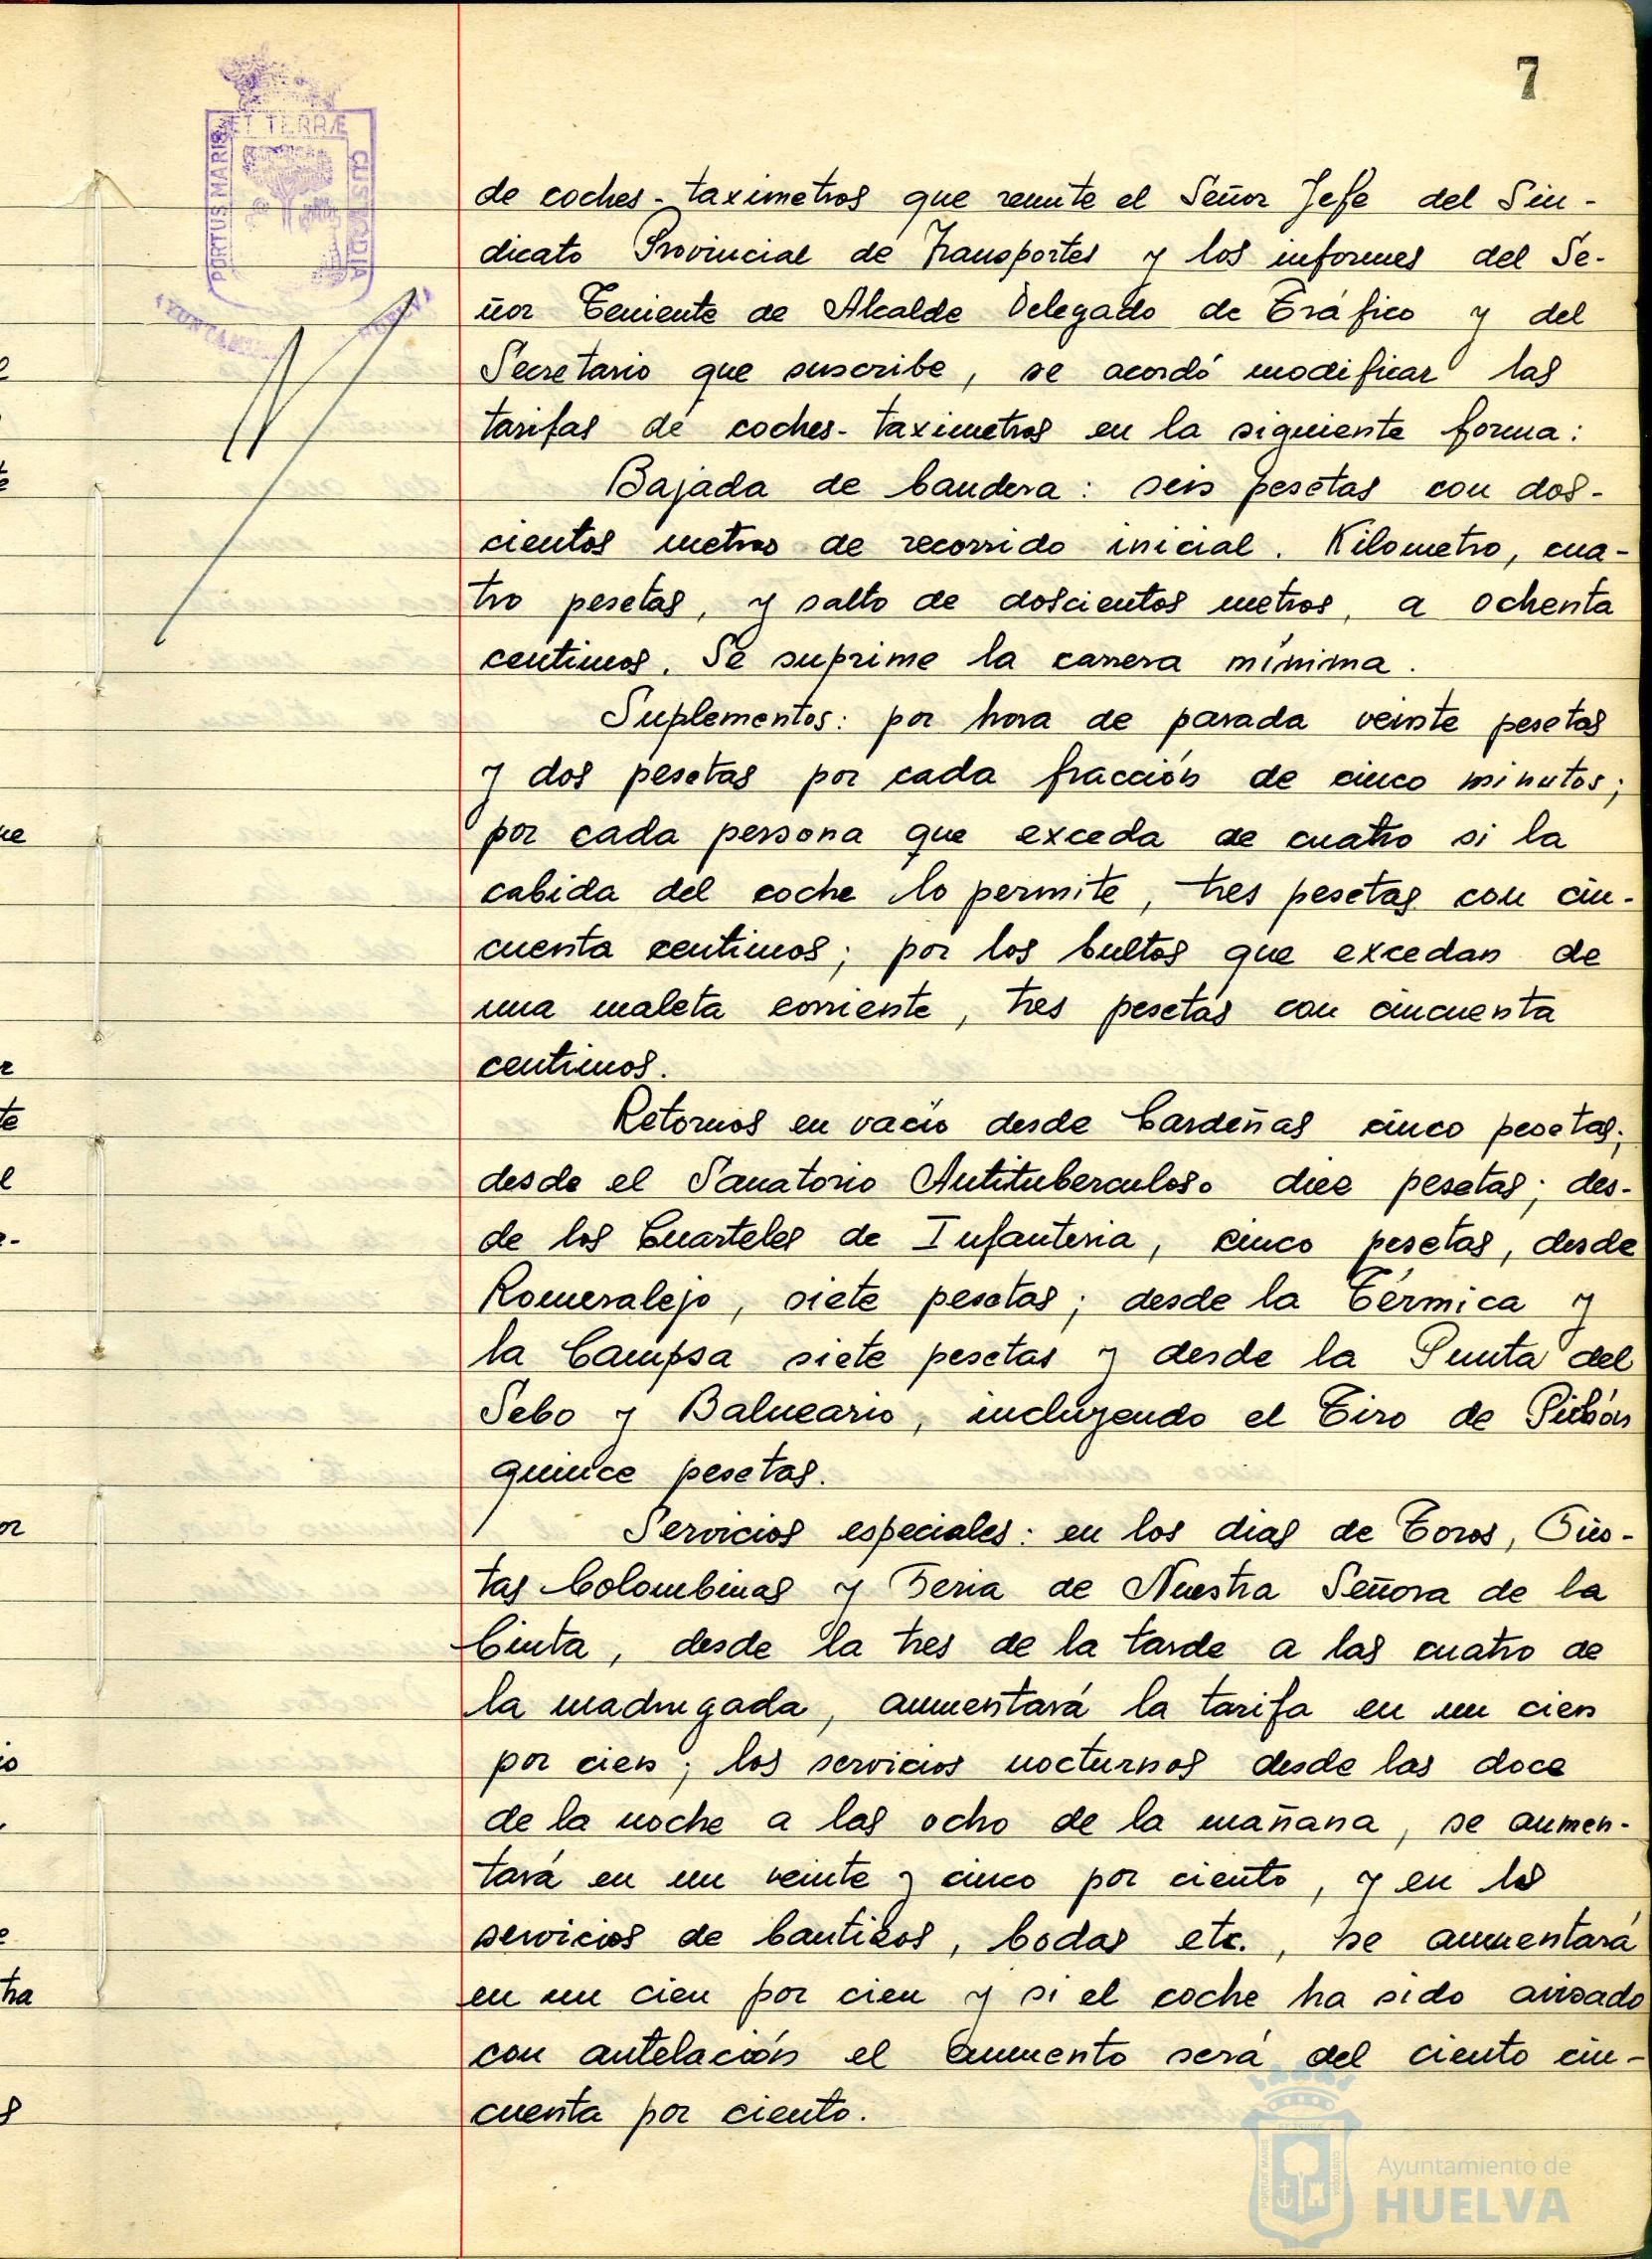 7
PORTUS MARIS ET TERRÆ CUSTODIA
AYUNTAMIENTO HUELVA
de coches-taximetros que remite el Señor Jefe del Sin-
dicato Provincial de Transportes y los informes del Se-
ñor Teniente de Alcalde Delegado de Tráfico y del
Secretario que suscribe, se acordó modificar las
tarifas de coches-taximetros en la siguiente forma:
Bajada de bandera: seis pesetas con dos-
cientos metros de recorrido inicial. Kilometro, cua-
tro pesetas, y salto de doscientos metros, a ochenta
centimos. Se suprime la carrera mínima.
Suplementos: por hora de parada veinte pesetas
y dos pesetas por cada fracción de cinco minutos;
por cada persona que exceda de cuatro si la
cabida del coche lo permite, tres pesetas con cin-
cuenta centimos; por los bultos que excedan de
una maleta corriente, tres pesetas con cincuenta
centimos.
Retornos en vacio desde Cardeñas cinco pesetas;
desde el Sanatorio Antituberculoso diez pesetas; des-
de los Cuarteles de Infanteria, cinco pesetas, desde
Romeralejo, siete pesetas; desde la Térmica y
la Campsa siete pesetas y desde la Punta del
Sebo y Balneario, incluyendo el Tiro de Pichón
quince pesetas.
Servicios especiales: en los dias de Toros, Fies-
tas Colombinas y Feria de Nuestra Señora de la
Cinta, desde la tres de la tarde a las cuatro de
la madrugada, aumentará la tarifa en un cien
por cien; los servicios nocturnos desde las doce
de la noche a las ocho de la mañana, se aumen-
tará en un veinte y cinco por ciento, y en los
servicios de bautizos, bodas etc., se aumentará
en un cien por cien y si el coche ha sido avisado
con antelación el aumento será del ciento cin-
cuenta por ciento.
Ayuntamiento de
HUELVA